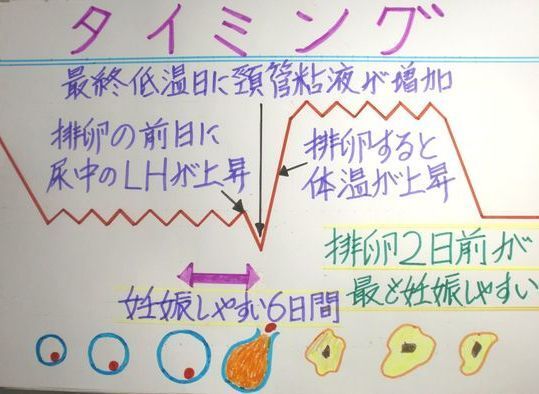 タイミング
最終低温日に頚管粘液が増加
排卵の前日に
尿中のLHが上昇
排卵すると
体温が上昇
排卵2日前が
最も妊娠しやすい
妊娠しやすい6日間